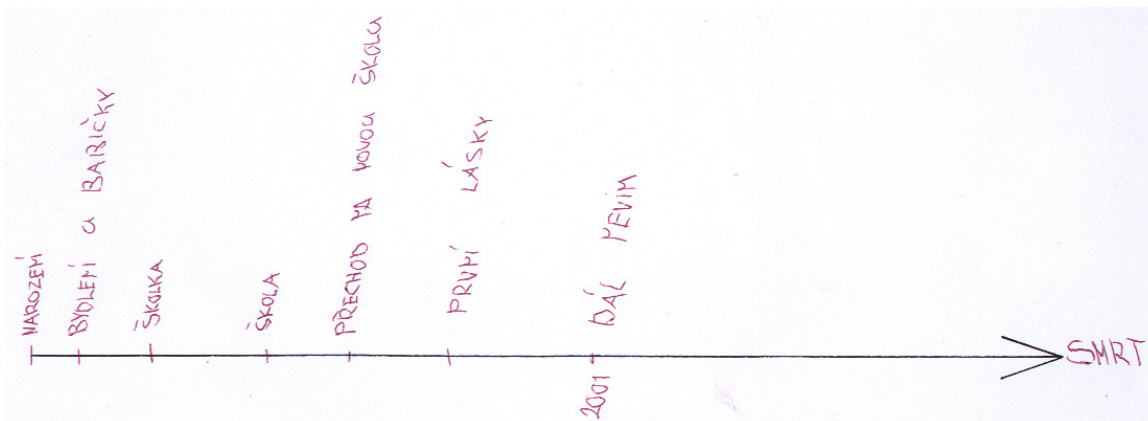 NAROZENÍ
BYDLENÍ U BABIČKY
ŠKOLKA
ŠKOLA
PŘECHOD NA NOVOU ŠKOLU
PRVNÍ LÁSKY
2001
DÁL NEVIM
SMRT